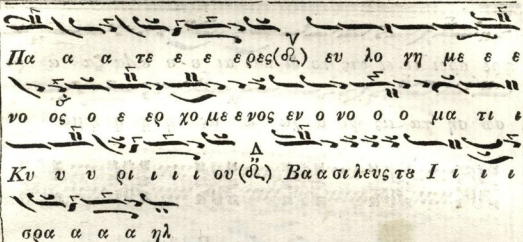 Πα α α τε ε ε ε ρες (ϡ) ευ λο γη με ε ε
νο ος ο ε ερ χο με ε νος εν ο νο ο ο μα τι ι
Κυ υ υ ρι ι ι ι ου (ϡ) Βα α σι λευς τȣ Ι ι ι ι
σρα α α α α ηλ